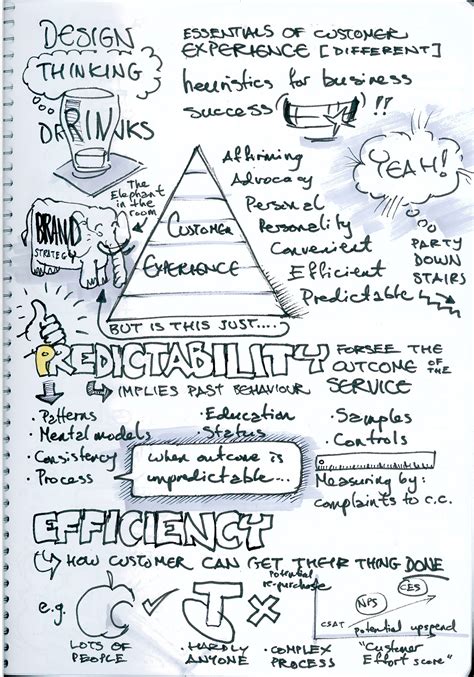 DESIGN
THINKING
DRINKS
ESSENTIALS OF CUSTOMER
EXPERIENCE [DIFFERENT]
heuristics for business
success
!!
YEAH!
PARTY
DOWN
STAIRS
The
Elephant
in the
room
BRAND
STRATEGY
CUSTOMER
EXPERIENCE
Affirming
Advocacy
Personal
Personality
Convenient
Efficient
Predictable
BUT IS THIS JUST....
PREDICTABILITY
FORSEE THE
OUTCOME OF THE
SERVICE
IMPLIES PAST BEHAVIOUR
· Patterns
· Mental models
· Consistency
· Process
· Education
· Status
· Samples
· Controls
when outcome is
unpredictable...
Measuring by:
complaints to c.c.
EFFICIENCY
HOW CUSTOMER CAN GET THEIR THING DONE
potential
re-purchase
e.g.
LOTS OF
PEOPLE
· HARDLY
ANYONE
· COMPLEX
PROCESS
CSAT
NPS
CES
potential upspend
"Customer
Effort score"